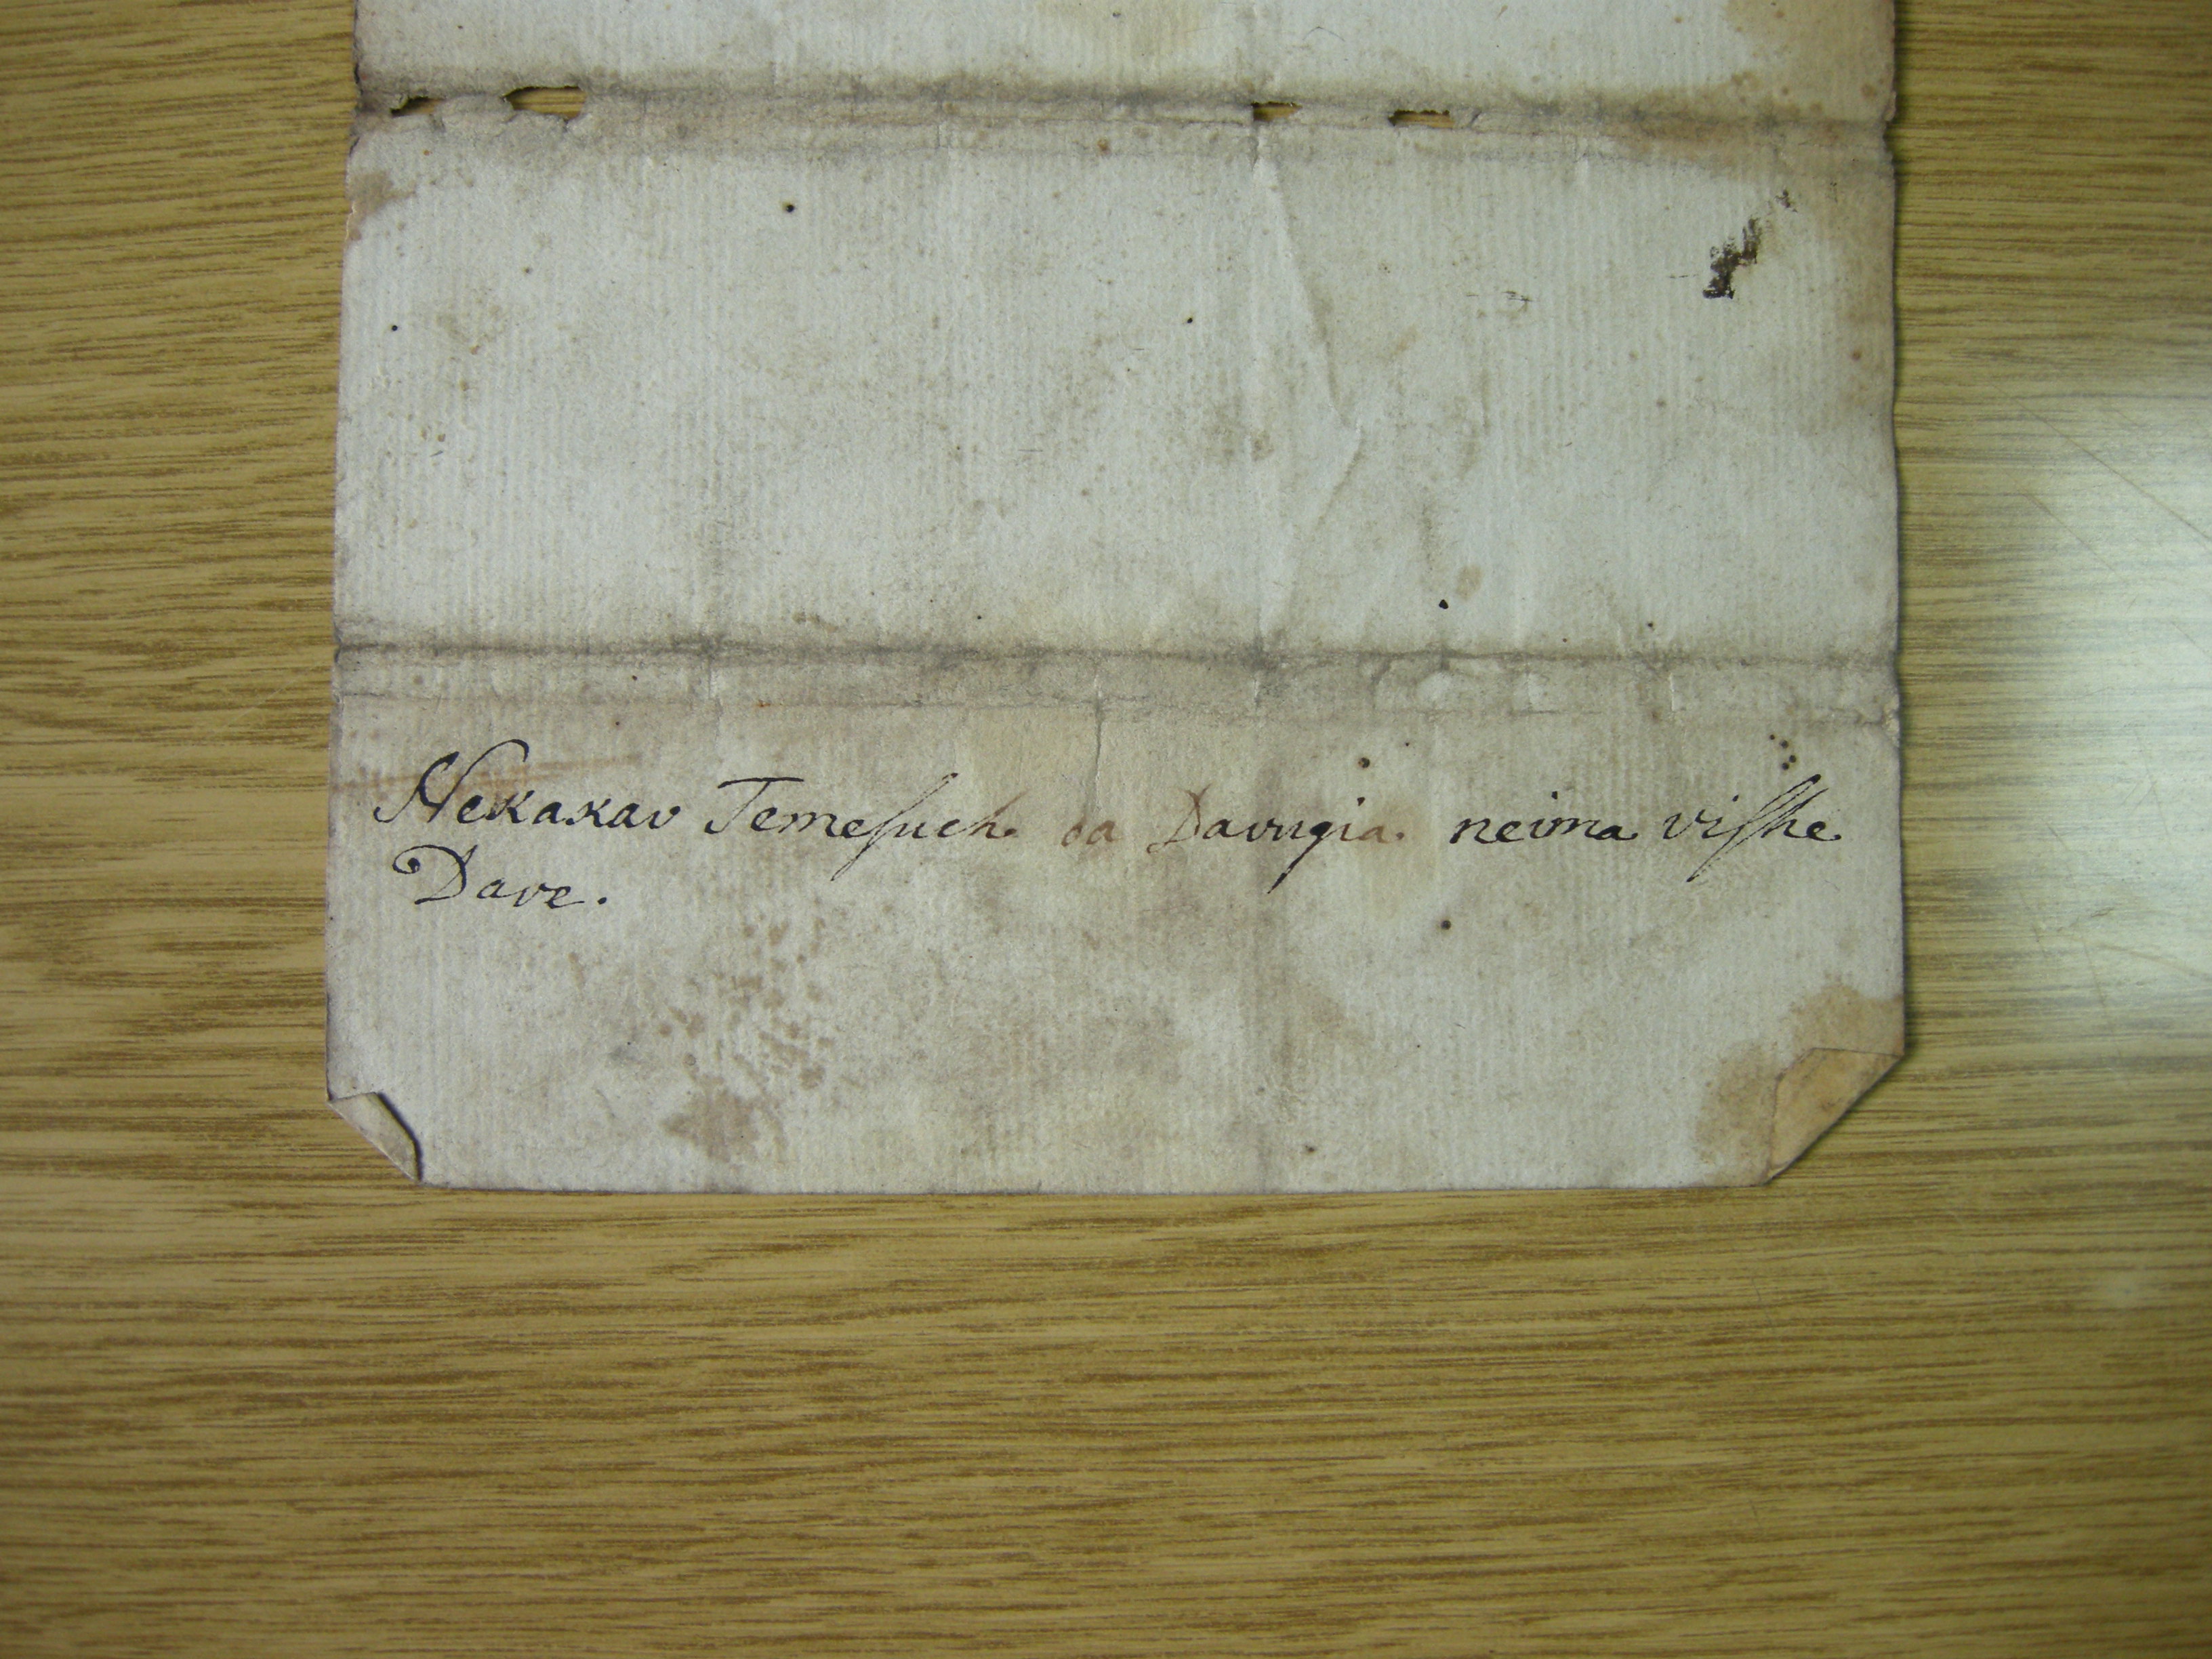 Nekakav Temeſuch da Davugia neima viſhe
Dave.